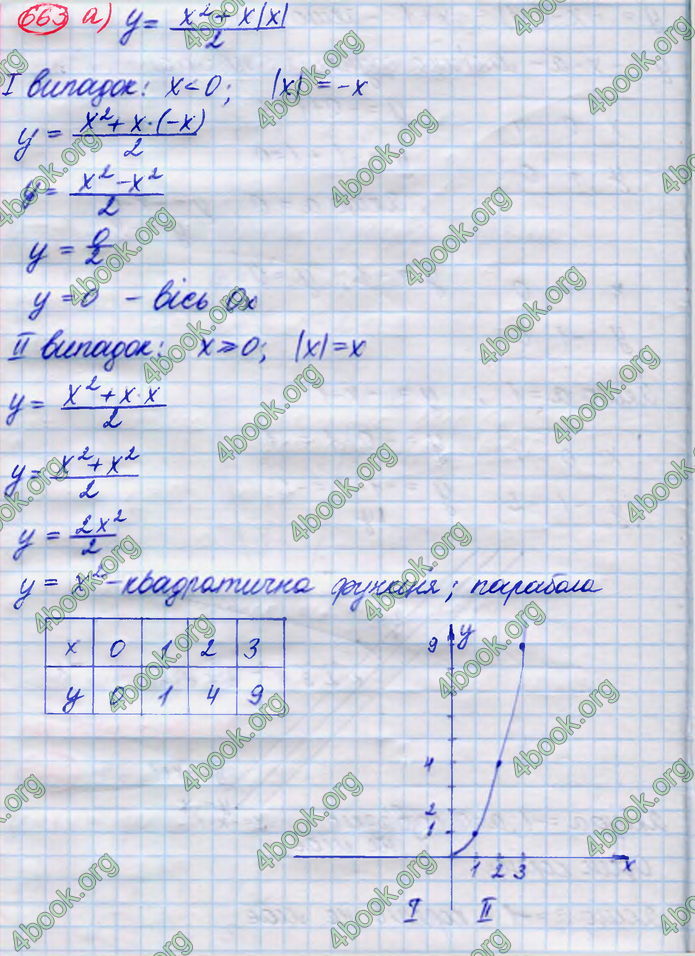 663 а) y = (x² + x|x|)/2
I випадок: x < 0; |x| = -x
y = (x² + x·(-x))/2
y = (x² - x²)/2
y = 0/2
y = 0 - вісь Ox
II випадок: x ≥ 0; |x| = x
y = (x² + x·x)/2
y = (x² + x²)/2
y = 2x²/2
y = x² - квадратична функція; парабола
x 0 1 2 3
y 0 1 4 9
y
9
4
2
1
1 2 3 x
I II
4book.org